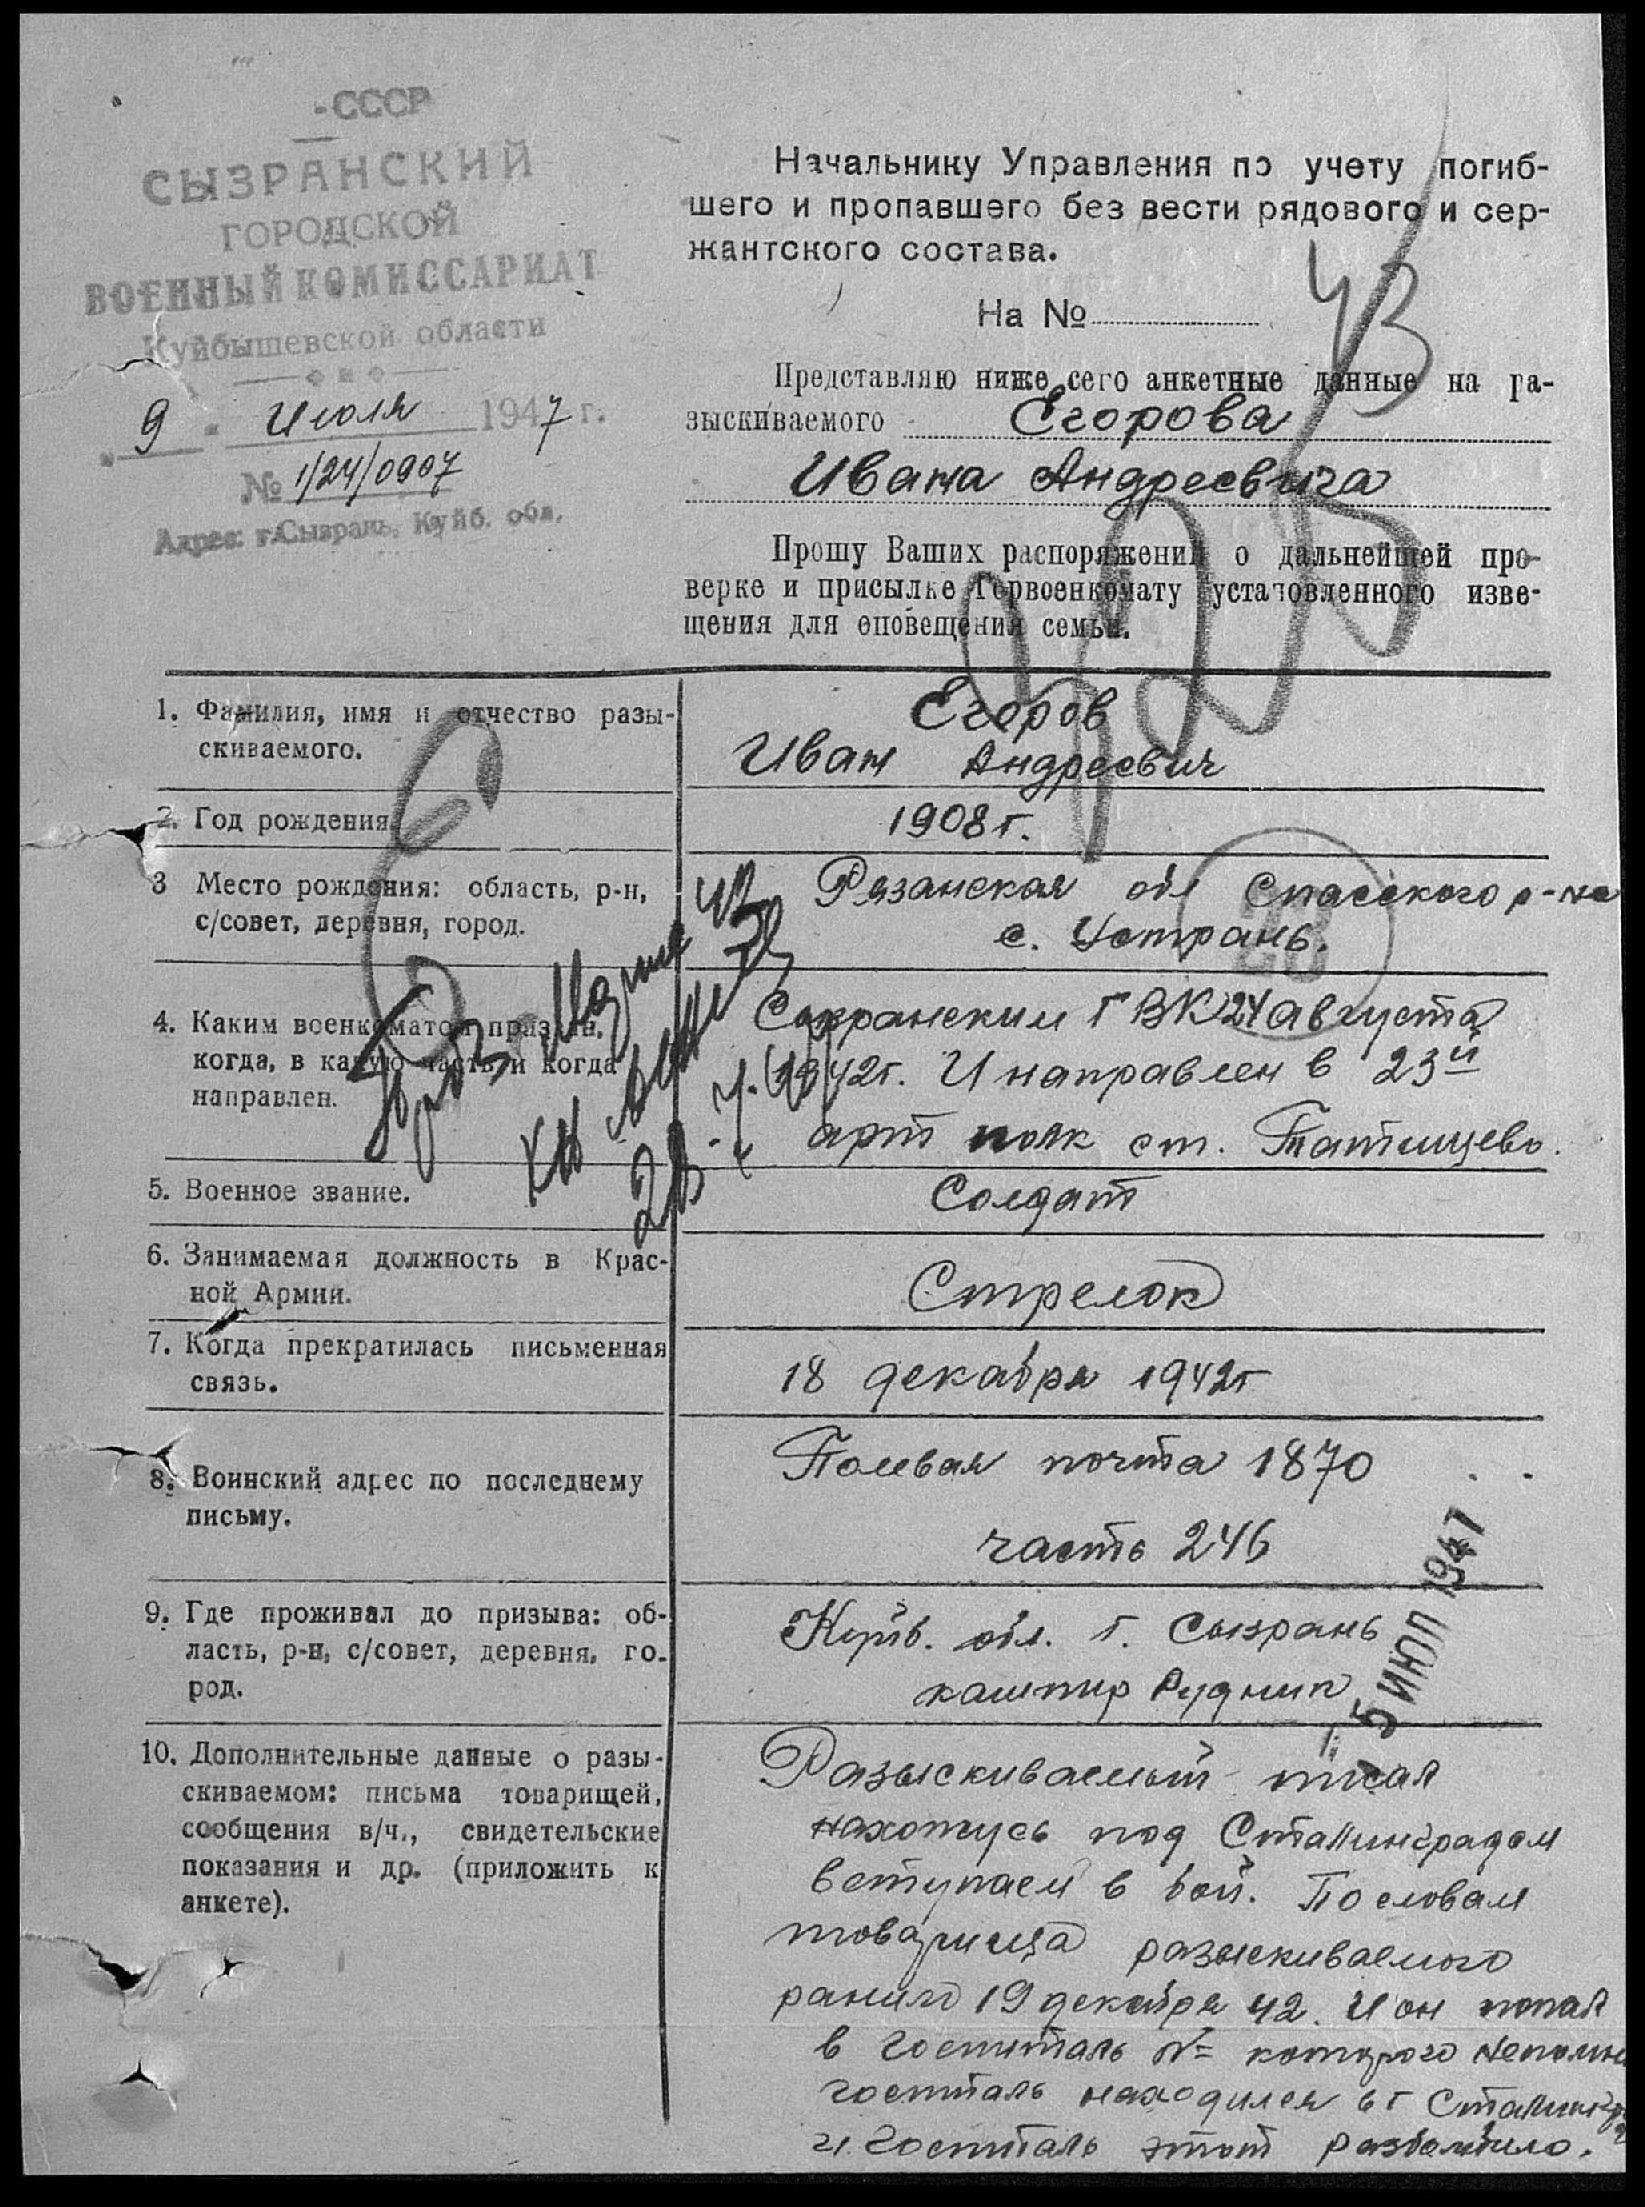 -СССР
СЫЗРАНСКИЙ
ГОРОДСКОЙ
ВОЕННЫЙ КОМИССАРИАТ
Куйбышевской области
9 Июля 1947 г.
№ 1/24/0907
Адрес: г. Сызрань, Куйб. обл.
Начальнику Управления по учету погиб-
шего и пропавшего без вести рядового и сер-
жантского состава.
На №
43
Представляю ниже сего анкетные данные на ра-
зыскиваемого Егорова
Ивана Андреевича
Прошу Ваших распоряжений о дальнейшей про-
верке и присылке Горвоенкомату установленного изве-
щения для оповещения семьи.
1. Фамилия, имя и отчество разы-
скиваемого.
Егоров
Иван Андреевич
2. Год рождения
1908 г.
3 Место рождения: область, р-н,
с/совет, деревня, город.
Рязанская обл Спасского р-на
с. Устрань.
4. Каким военкоматом призван,
когда, в какую часть и когда
направлен.
Сызранским ГВК 24 августа
1942г. И направлен в 23й
арт полк ст. Татищево.
5. Военное звание.
Солдат
6. Занимаемая должность в Крас-
ной Армии.
Стрелок
7. Когда прекратилась письменная
связь.
18 декабря 1942г
8. Воинский адрес по последнему
письму.
Полевая почта 1870
часть 246
9. Где проживал до призыва: об-
ласть, р-н, с/совет, деревня, го-
род.
Куйб. обл. г. Сызрань
кашпир Рудник
15 ИЮЛ 1947
10. Дополнительные данные о разы-
скиваемом: письма товарищей,
сообщения в/ч., свидетельские
показания и др. (приложить к
анкете).
Разыскиваемый писал
нахотусь под Сталинградом
вступаем в бой. По словам
товарища разыскиваемого
ранило 19 декабря 42. И он попал
в госпиталь № которого непомн
госпиталь находился в г Сталинград
и госпиталь этот разбомбило.